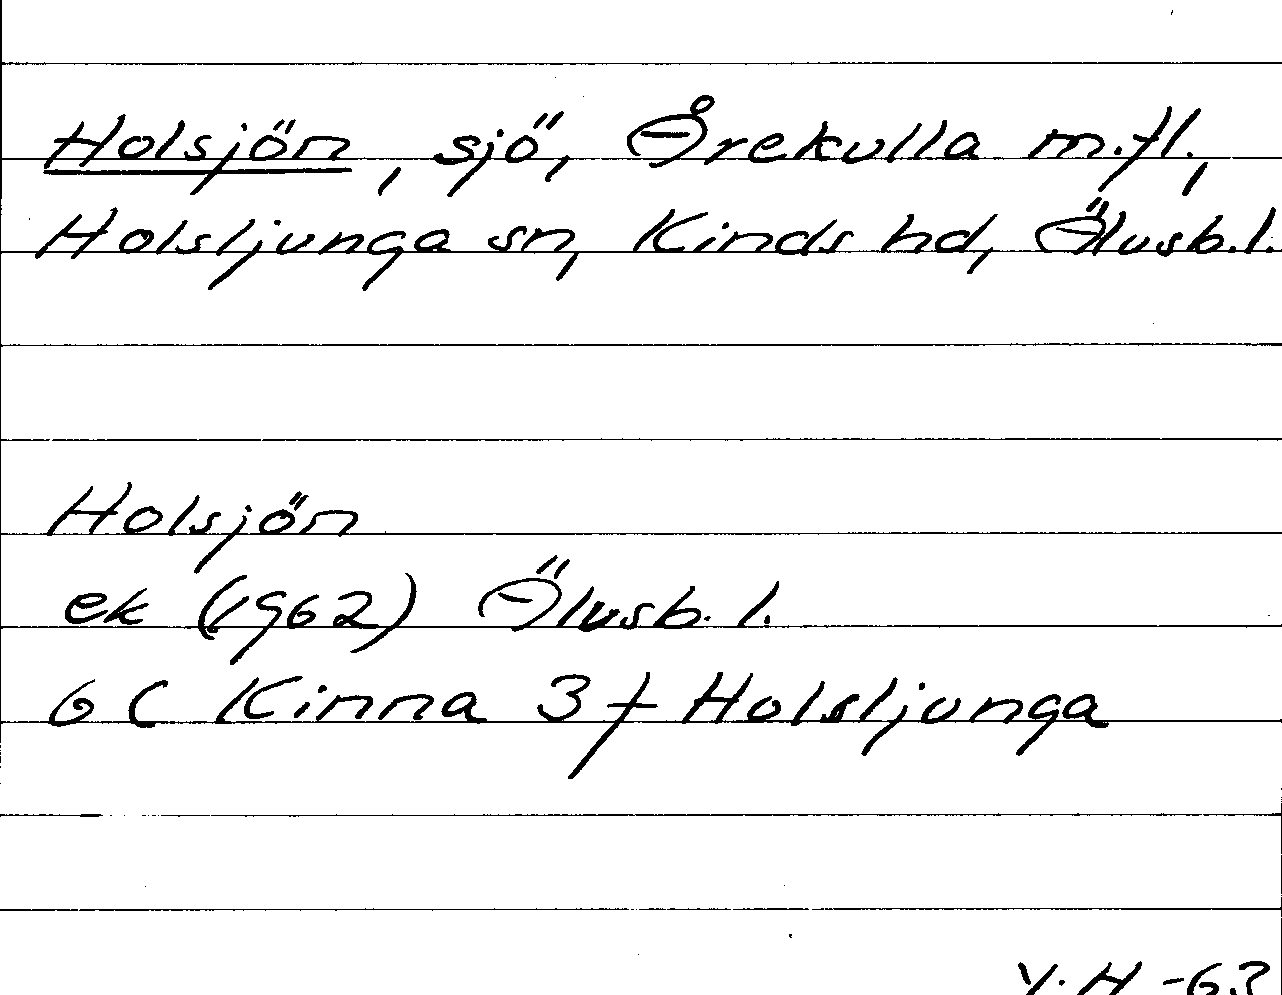 Holsjön, sjö, Årekulla m.fl.,
Holsljunga sn, Kinds hd, Älvsb.l.
Holsjön
ek (1962) Älvsb. l.
6 C Kinna 3 f Holsljunga
V. H -63